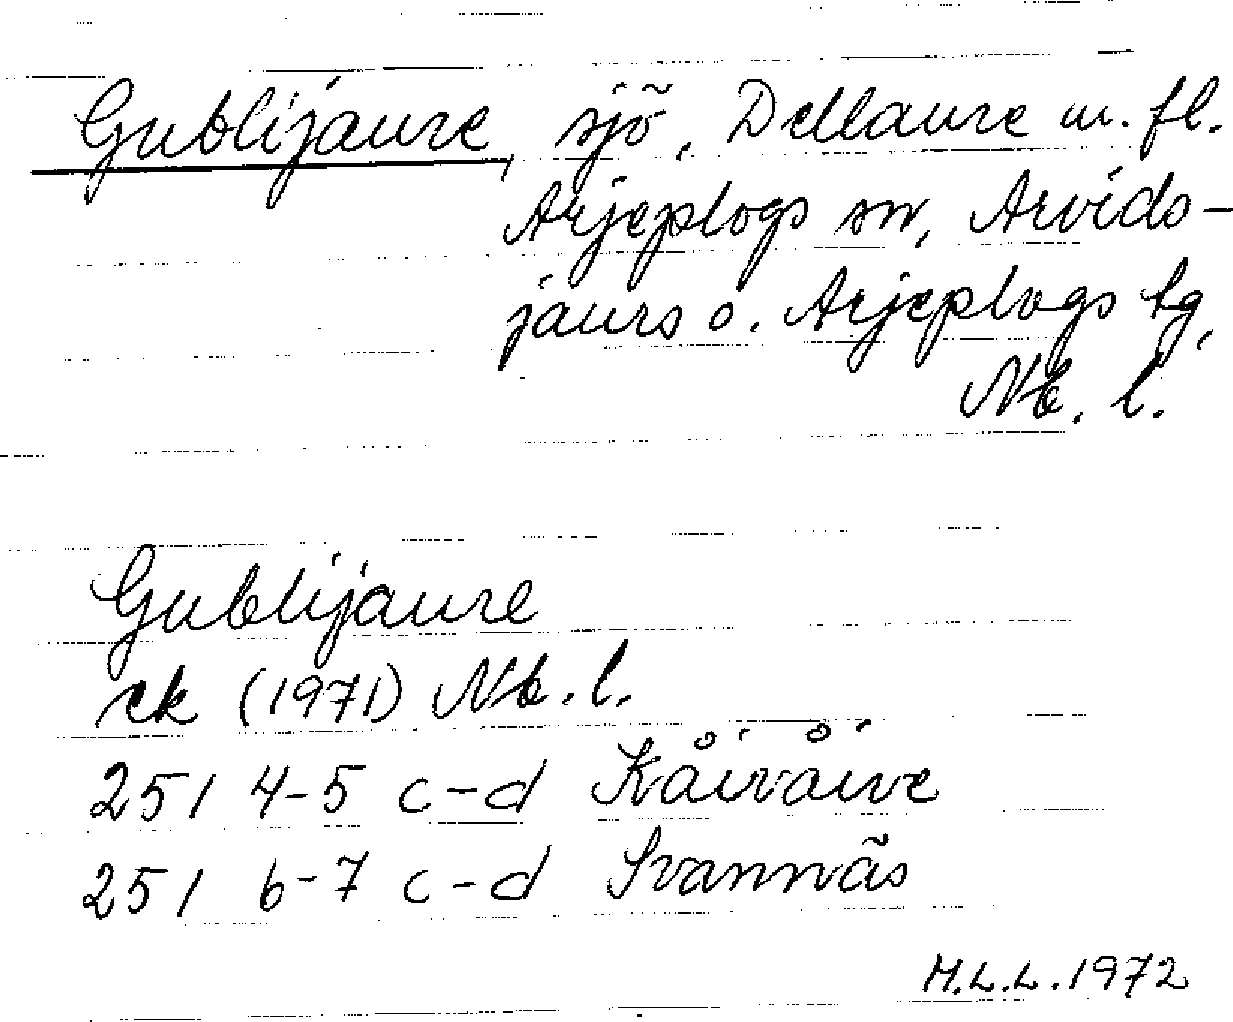 Gublijaure, sjö, Dellaure m. fl.
Arjeplogs sn, Arvids-
jaurs o. Arjeplogs tg,
Nb. l.
Gublijaure
ek (1971) Nb. l.
251 4-5 c-d Kåivåive
251 6-7 c-d Svannäs
M.L.L. 1972